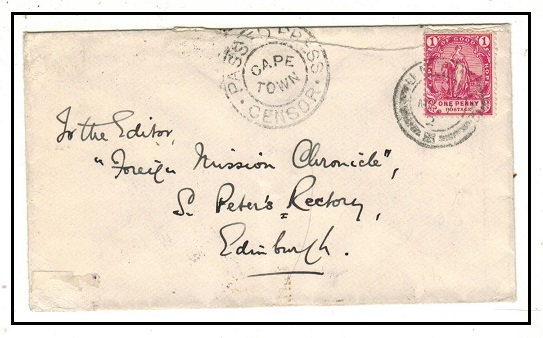 PASSED PRESS CENSOR
CAPE
TOWN
1 1
OF GOOD
ONE PENNY
POSTAGE
To the Editor,
"Foreign Mission Chronicle",
S. Peter's Rectory,
Edinburgh.